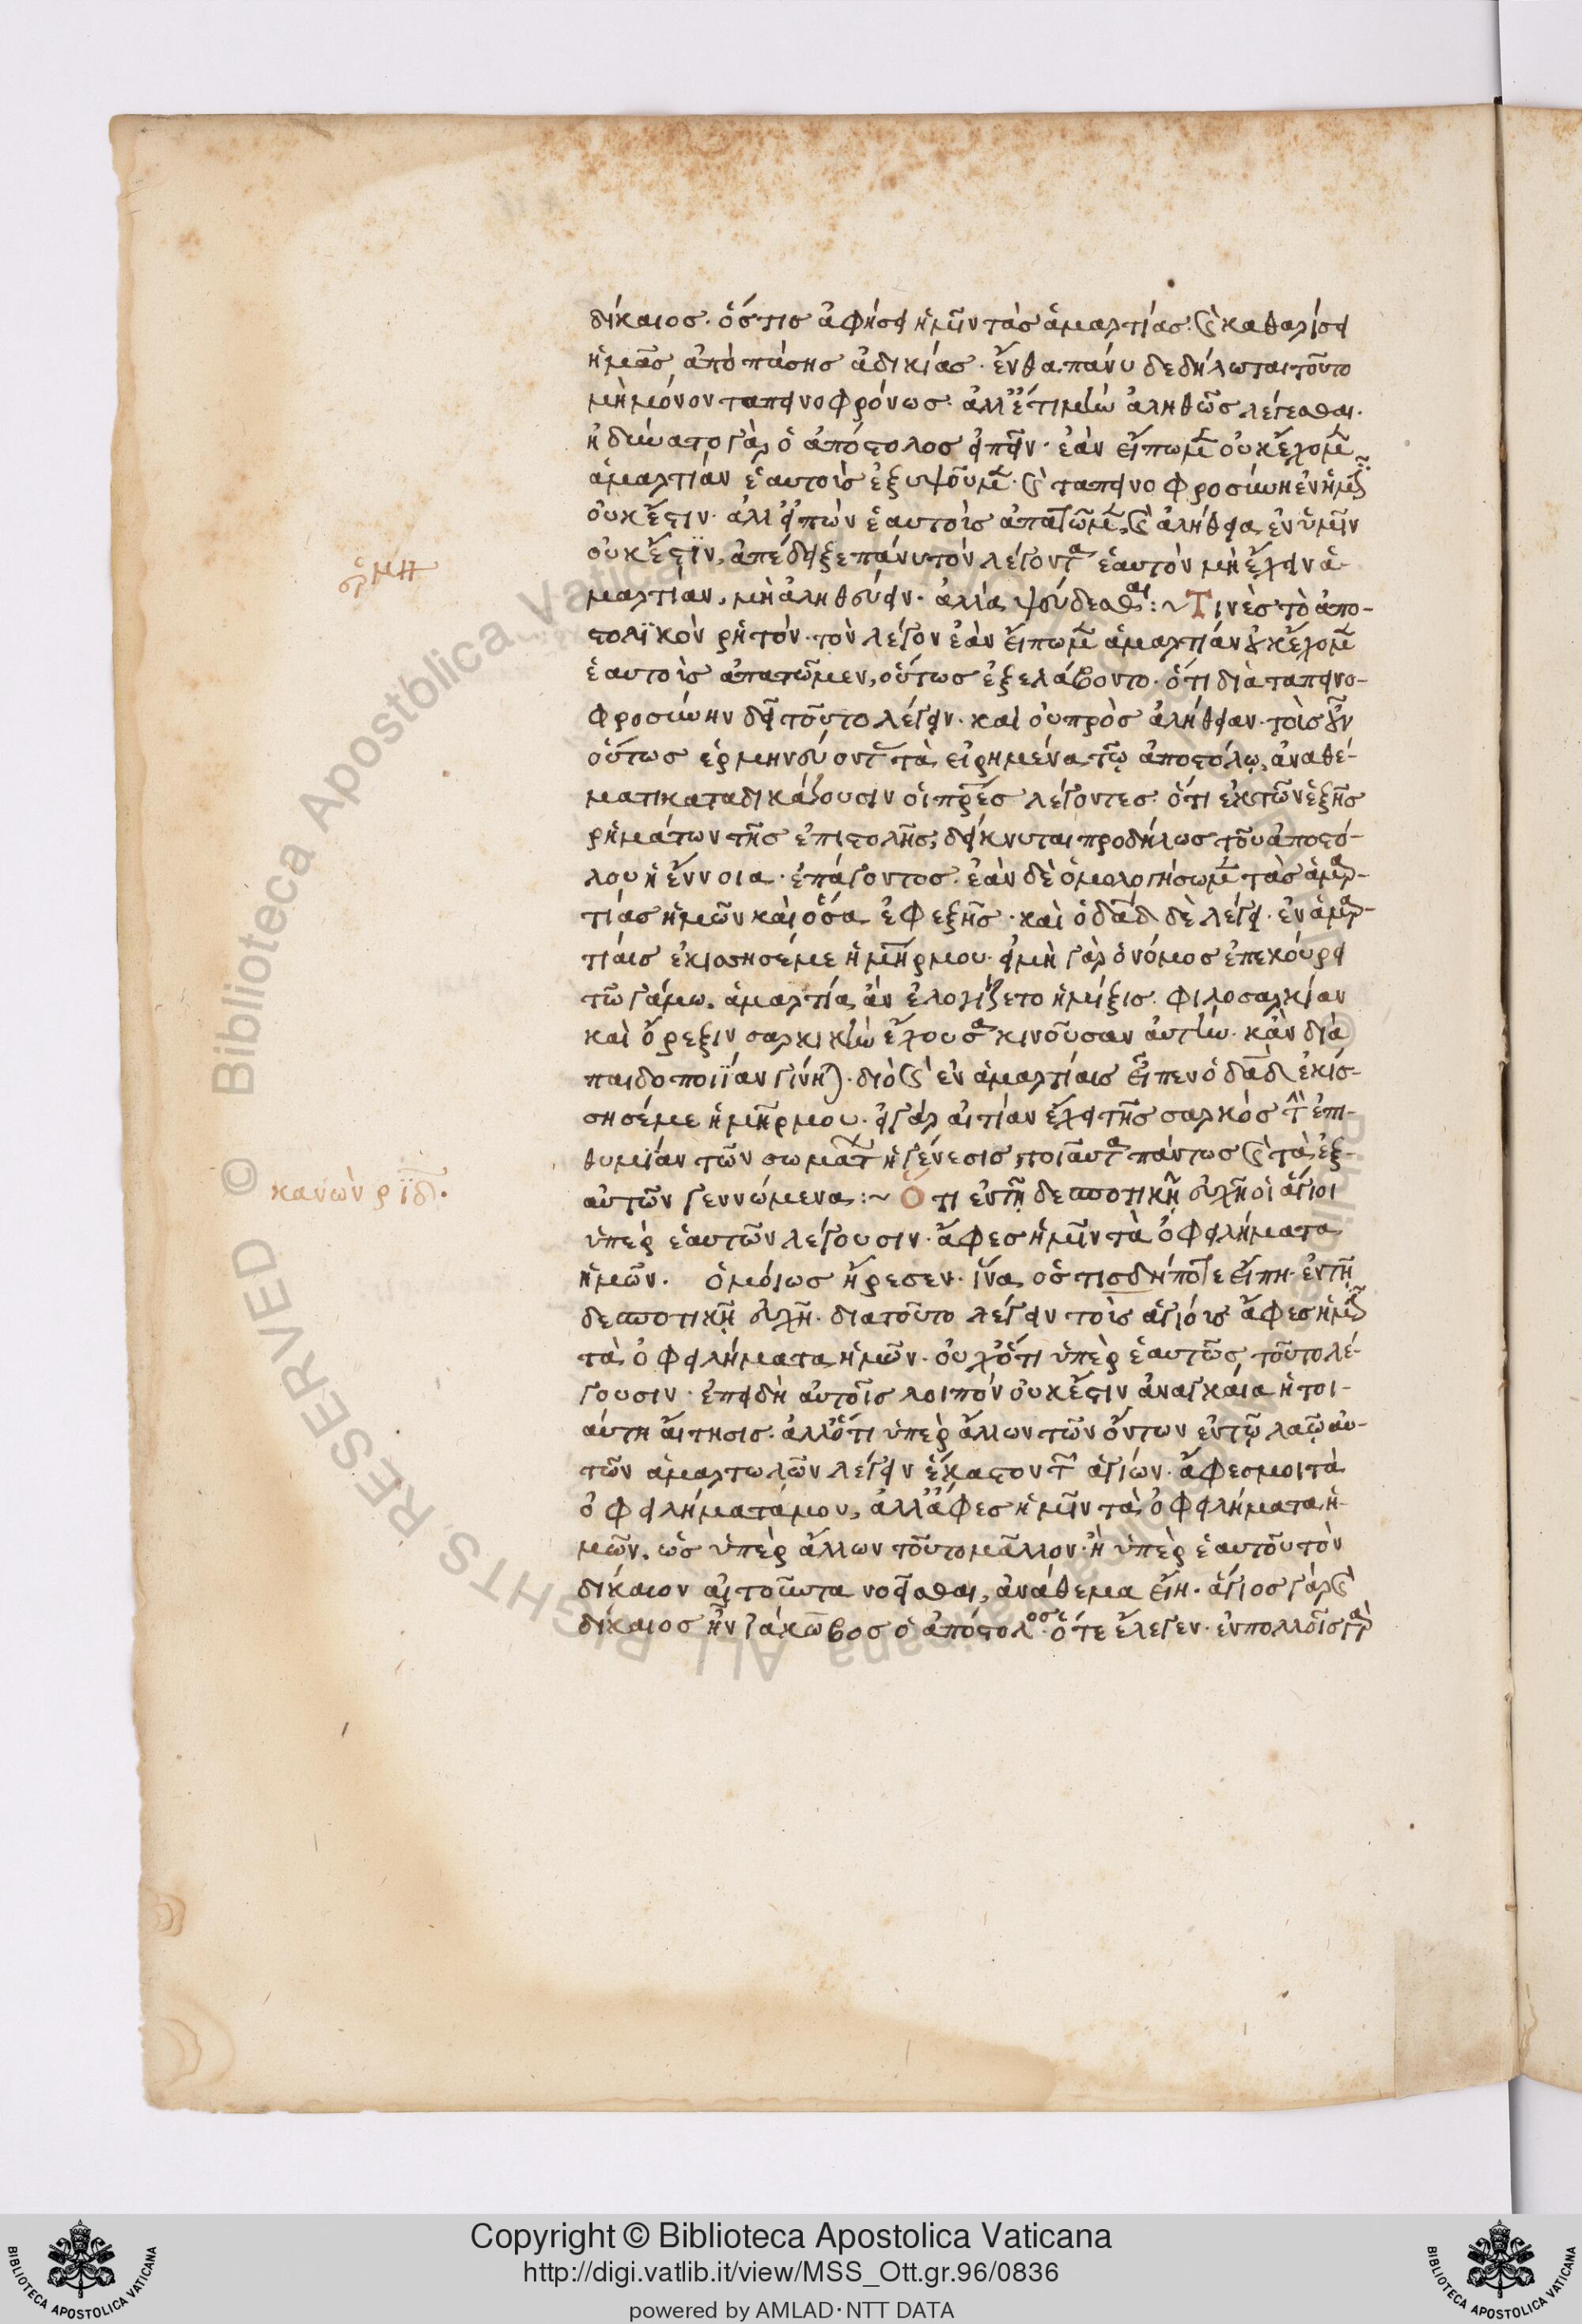 δίκαιος· ὅστις ἀφήσει ἡμῖν τὰς ἁμαρτίας· ϗ καθαρίσει
ἡμᾶς ἀπὸ πάσης ἀδικίας· ἔνθα πάνυ δεδήλωται τοῦτο
μὴ μόνον ταπεινοφρόνως· ἀλλ' ἔτι μὴν ἀληθῶς λέγεσθαι·
ἠδύνατο γὰρ ὁ ἀπόστολος εἰπεῖν· ἐὰν εἴπωμεν οὐκ ἔχομεν
ἁμαρτίαν ἑαυτοὺς ἐξυψοῦμεν· ϗ ταπεινοφροσύνη ἐν ἡμῖν
οὐκ ἔστιν· ἀλλ' εἰπὼν ἑαυτοὺς ἀπατῶμεν, ϗ ἀλήθεια ἐν ὑμῖν
οὐκ ἔστιν, ἀπέδειξε πάνυ τὸν λέγοντα ἑαυτὸν μὴ ἔχειν ἁ-
ρμη
μαρτίαν, μὴ ἀληθεύειν· ἀλλὰ ψεύδεσθαι :~ Τινὲς τὸ ἀπο-
στολϊκὸν ῥητὸν· τὸν λέγον ἐὰν εἴπωμεν ἁμαρτίαν οὐκ ἔχομεν
ἑαυτοὺς ἀπατῶμεν, οὕτως ἐξελάβοντο· ὅτι διὰ ταπεινο-
φροσύνην δεῖ τοῦτο λέγειν· καὶ οὐ πρὸς ἀλήθειαν· τοὺς οὖν
οὕτως ἑρμηνεύοντας τὰ εἰρημένα τῷ ἀποστόλῳ, ἀναθέ-
ματι καταδικάζουσιν οἱ πρες λέγοντες· ὅτι ἐκ τῶν ἑξῆς
ῥημάτων τῆς ἐπιστολῆς, δείκνυται προδήλως τοῦ ἀποστό-
λου ἡ ἔννοια· ἐπάγοντος· ἐὰν δὲ ὁμολογήσωμεν τὰς ἁμαρ-
τίας ἡμῶν καὶ ὅσα ἐφεξῆς· καὶ ὁ δαδ δὲ λέγει· ἐν ἁμαρ-
τίαις ἐκίσσησέ με ἡ μηρ μου· εἰ μὴ γὰρ ὁ νόμος ἐπεκούρει
τῶ γάμω, ἁμαρτία ἂν ἐλογίζετο ἡ μίξις· φιλοσαρκίαν
καὶ ὄρεξιν σαρκικὴν ἔχουσα κινοῦσαν αὐτὴν· κἂν διὰ
παιδοποιΐαν γίνηται· διὸ ϗ ἐν ἁμαρτίαις εἶπεν ὁ δαδ ἐκίσ-
σησέ με ἡ μηρ μου· εἰ γὰρ αἰτίαν ἔχει τῆς σαρκὸς τὴν ἐπι-
θυμίαν τῶν σωμάτων ἡ γένεσις, τοιαῦτα πάντως ϗ τὰ ἐξ
κανὼν ριδ·
αὐτῶν γεννώμενα :~ Ὅτι ἐν τῇ δεσποτικῇ εὐχῇ οἱ ἅγιοι
ὑπὲρ ἑαυτῶν λέγουσιν· ἄφες ἡμῖν τὰ ὀφειλήματα
ἡμῶν. ὁμοίως ἤρεσεν· ἵνα ὅστις δήποτε εἴπη· ἐν τῇ
δεσποτικῇ εὐχῇ· διατοῦτο λέγειν τοὺς ἁγίους ἄφες ἡμῖν
τὰ ὀφειλήματα ἡμῶν· οὐχ ὅτι ὑπὲρ ἑαυτῶν τοῦτο λέ-
γουσιν· ἐπειδὴ αὐτοῖς λοιπὸν οὐκ ἔστιν ἀναγκαία ἡ τοι-
αύτη αἴτησις· ἀλλ' ὅτι ὑπὲρ ἄλλων τῶν ὄντων ἐν τῷ λαῷ αὐ-
τῶν ἁμαρτωλῶν λέγειν ἕκαστον τῶν ἁγίων· ἄφες μοι τὰ
ὀφειλήματά μου, ἀλλ' ἄφες ἡμῖν τὰ ὀφειλήματα ἡ-
μῶν, ὡς ὑπὲρ ἄλλων τοῦτο μᾶλλον· ἢ ὑπὲρ ἑαυτοῦ τὸν
δίκαιον αἰτοῦντα νοεῖσθαι, ἀνάθεμα εἴη· ἅγιος γὰρ ϗ
δίκαιος ἦν ϊάκωβος ὁ ἀπόστολος· ὅτε ἔλεγεν· ἐν πολλοῖς γὰρ
Copyright © Biblioteca Apostolica Vaticana
http://digi.vatlib.it/view/MSS_Ott.gr.96/0836
powered by AMLAD·NTT DATA
BIBLIOTECA APOSTOLICA VATICANA
BIBLIOTECA APOSTOLICA VATICANA
© Biblioteca Apostolica Vaticana
ALL RIGHTS RESERVED